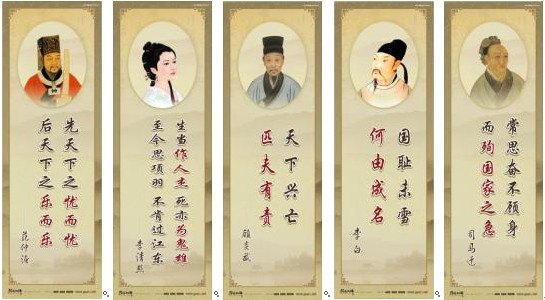 先天下之忧而忧
后天下之乐而乐
范仲淹
生当作人杰 死亦为鬼雄
至今思项羽 不肯过江东
李清照
天下兴亡
匹夫有责
顾炎武
国耻未雪
何由成名
李白
常思奋不顾身
而殉国家之急
司马迁